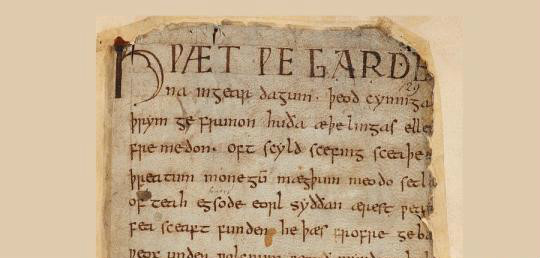 HǷÆT ǷE GARDE
na ingear dagum. þeod cyninga
þrym ge frunon huða æþelingas elle
fremedon. oft scyld scefing sceaþe
þreatum monegū mægþum meodo setla
of teah egsode eorl syððan ærest ƿear
fea sceaft funden he þæs frofre geba
ƿeox under ƿolcnum